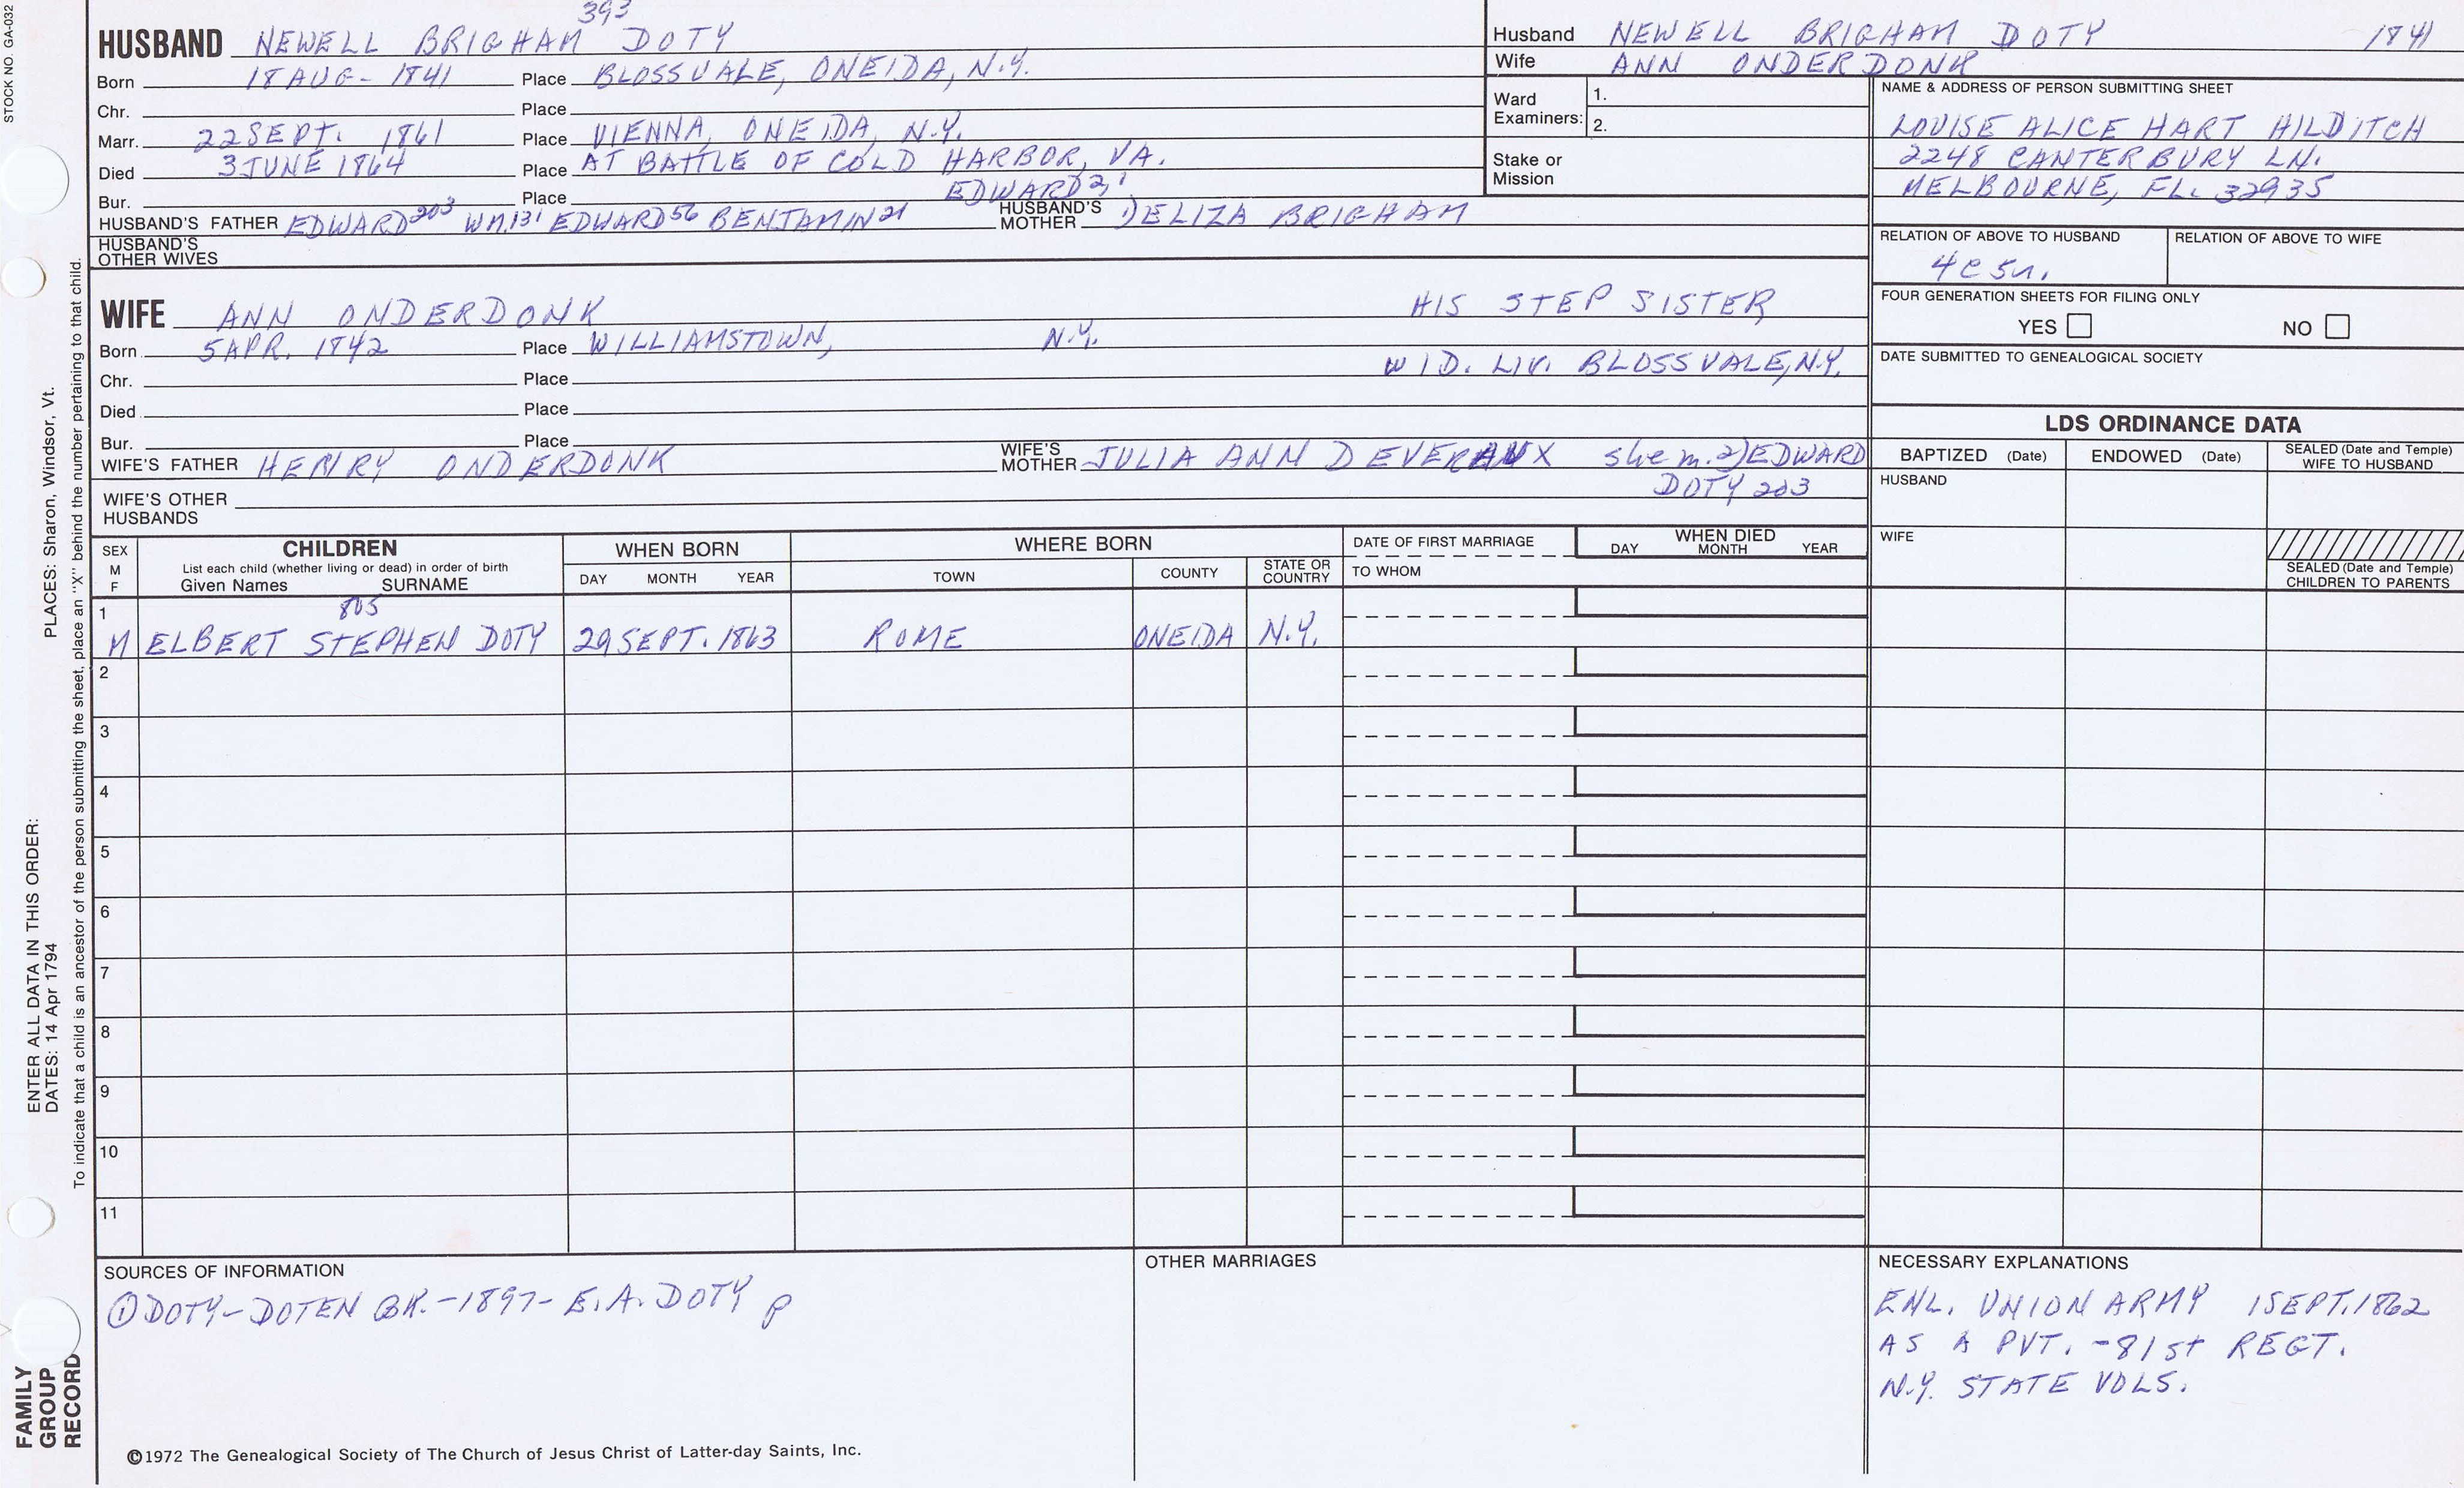 STOCK NO. GA-032
393
HUSBAND NEWELL BRIGHAM DOTY
Born 18 AUG - 1841 Place BLOSSVALE, ONEIDA, N.Y.
Chr. Place
Marr. 22 SEPT. 1861 Place VIENNA, ONEIDA, N.Y.
Died 3 JUNE 1864 Place AT BATTLE OF COLD HARBOR, VA.
Bur. Place EDWARD 2,1
HUSBAND'S FATHER EDWARD 203 WM. 131 EDWARD 56 BENJAMIN 21 HUSBAND'S MOTHER 1) ELIZA BRIGHAM
HUSBAND'S OTHER WIVES
Husband NEWELL BRIGHAM DOTY 1841
Wife ANN ONDERDONK
Ward Examiners: 1.
2.
Stake or Mission
NAME & ADDRESS OF PERSON SUBMITTING SHEET
LOUISE ALICE HART HILDITCH
2248 CANTERBURY LN.
MELBOURNE, FL. 32935
RELATION OF ABOVE TO HUSBAND RELATION OF ABOVE TO WIFE
4 C 5 r.
FOUR GENERATION SHEETS FOR FILING ONLY
YES NO
DATE SUBMITTED TO GENEALOGICAL SOCIETY
WIFE ANN ONDERDONK HIS STEP SISTER
Born 5 APR. 1842 Place WILLIAMSTOWN, N.Y.
WID. LIV. BLOSSVALE, N.Y.
Chr. Place
Died Place
Bur. Place
WIFE'S FATHER HENRY ONDERDONK WIFE'S MOTHER JULIA ANN DEVERAUX she m. 2) EDWARD
DOTY 203
WIFE'S OTHER HUSBANDS
LDS ORDINANCE DATA
BAPTIZED (Date) ENDOWED (Date) SEALED (Date and Temple) WIFE TO HUSBAND
HUSBAND
WIFE
SEALED (Date and Temple) CHILDREN TO PARENTS
SEX M F
CHILDREN
List each child (whether living or dead) in order of birth
Given Names SURNAME
WHEN BORN
DAY MONTH YEAR
WHERE BORN
TOWN COUNTY STATE OR COUNTRY
DATE OF FIRST MARRIAGE
TO WHOM
WHEN DIED
DAY MONTH YEAR
805
1
M ELBERT STEPHEN DOTY 29 SEPT. 1863 ROME ONEIDA N.Y.
2
3
4
5
6
7
8
9
10
11
SOURCES OF INFORMATION
① DOTY-DOTEN BK. -1897- E.A. DOTY p
OTHER MARRIAGES
NECESSARY EXPLANATIONS
ENL. UNION ARMY 1 SEPT. 1862
AS A PVT. - 81st REGT.
N.Y. STATE VOLS.
©1972 The Genealogical Society of The Church of Jesus Christ of Latter-day Saints, Inc.
FAMILY
GROUP
RECORD
ENTER ALL DATA IN THIS ORDER:
DATES: 14 Apr 1794 PLACES: Sharon, Windsor, Vt.
To indicate that a child is an ancestor of the person submitting the sheet, place an "X" behind the number pertaining to that child.